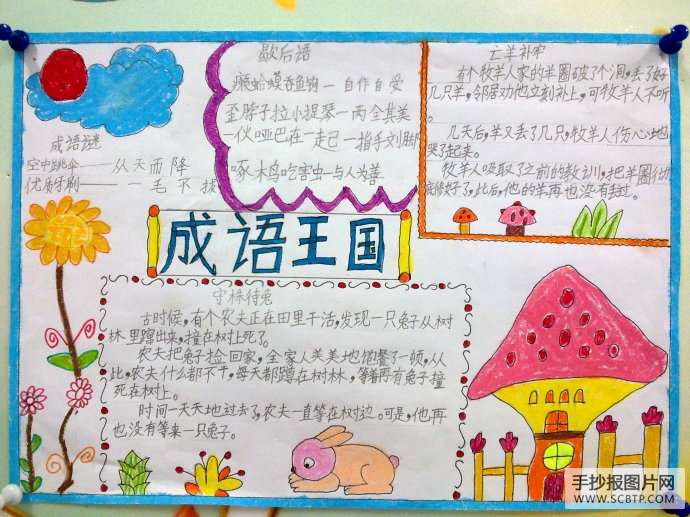 歇后语
癞蛤蟆吞鱼钩—自作自受
歪脖子拉小提琴—两全其美
一伙哑巴在一走己一指手刘脚
啄木鸟吃害虫—与人为善
亡羊补牢
有个牧羊人家的羊圈破了个洞,丢了好
几只羊,邻居劝他立刻补上,可牧羊人不听
。
几天后,羊又丢了几只,牧羊人伤心地
哭了起来。
牧羊人吸取了之前的教训,把羊圈
修好了,此后,他的羊再也没有丢过。
成语谜
空中跳伞——从天而降
优质牙刷——一毛不拔
成语王国
守株待兔
古时候,有个农夫正在田里干活,发现一只兔子从树
林里蹿出来,撞在树上死了。
农夫把兔子捡回家,全家人美美地饱餐了一顿,从
此,农夫什么都不干,每天都蹲在树林,等着再有兔子撞
死在树上。
时间一天天地过去了,农夫一直等在树边。可是,他再
也没有等来一只兔子。
手抄报图片网
WWW.SCBTP.COM